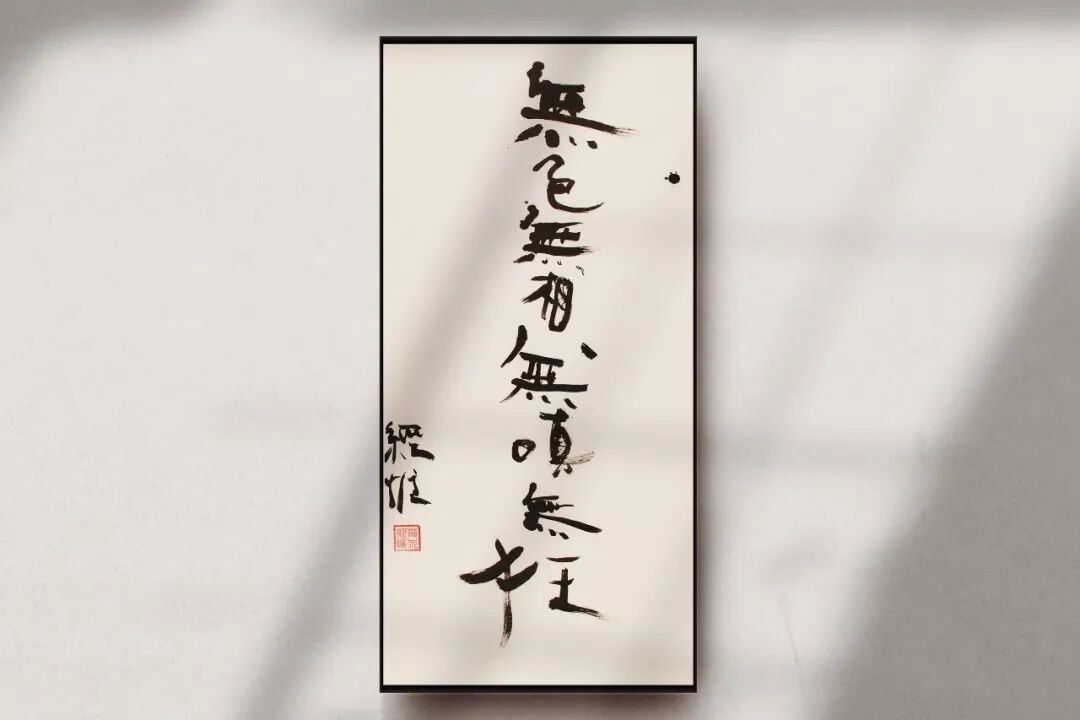 無色無相無嗔無狂
惟